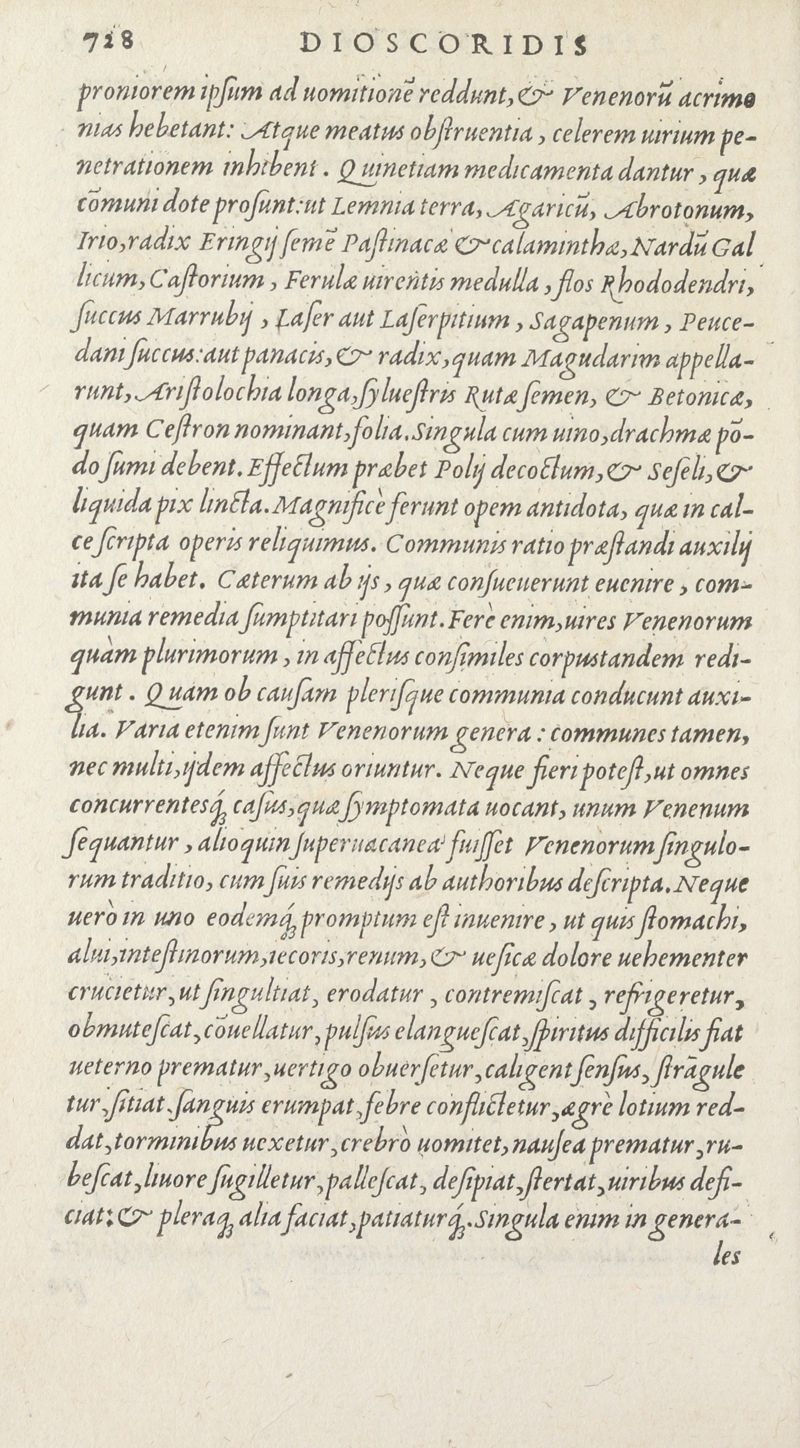 728 DIOSCORIDIS
proniorem ipſum ad uomitionē reddunt, & Venenorū acrimo
nias hebetant: Atque meatus obſtruentia, celerem uirium pe-
netrationem inhibent. Quinetiam medicamenta dantur, quæ
cōmuni dote proſunt: ut Lemnia terra, Agaricū, Abrotonum,
Irio, radix Eringij ſemē Paſtinacæ & calaminthæ, Nardū Gal
licum, Caſtorium, Ferulæ uirentis medulla, flos Rhododendri,
ſuccus Marrubij, Laſer aut Laſerpitium, Sagapenum, Peuce-
dani ſuccus: aut panacis, & radix, quam Magudarim appella-
runt, Ariſtolochia longa, ſylueſtris Rutæ ſemen, & Betonicæ,
quam Ceſtron nominant, folia. Singula cum uino, drachmæ pō-
do ſumi debent. Effectum præbet Polij decoctum, & Seſeli, &
liquida pix lincta. Magnificè ferunt opem antidota, quæ in cal-
ce ſcripta operis reliquimus. Communis ratio præſtandi auxilij
ita ſe habet. Cæterum ab ijs, quæ conſueuerunt euenire, com-
munia remedia ſumptitari poſſunt. Ferè enim, uires Venenorum
quàm plurimorum, in affectus conſimiles corpus tandem redi-
gunt. Quam ob cauſam pleriſque communia conducunt auxi-
lia. Varia etenim ſunt Venenorum genera: communes tamen,
nec multi, ijdem affectus oriuntur. Neque fieri poteſt, ut omnes
concurrentesq́ꝫ caſus, quæ ſymptomata uocant, unum Venenum
ſequantur, alioquin ſuperuacanea fuiſſet Venenorum ſingulo-
rum traditio, cum ſuis remedijs ab authoribus deſcripta. Neque
uerò in uno eodemq́ꝫ promptum eſt inuenire, ut quis ſtomachi,
alui, inteſtinorum, iecoris, renum, & ueſicæ dolore uehementer
crucietur, ut ſingultiat, erodatur, contremiſcat, refrigeretur,
obmuteſcat, cōuellatur, pulſus elangueſcat, ſpiritus difficilis fiat
ueterno prematur, uertigo obuerſetur, caligent ſenſus, ſtrāgule
tur, ſitiat ſanguis erumpat, febre conflictetur, ægrè lotium red-
dat, torminibus uexetur, crebrò uomitet, nauſea prematur, ru-
beſcat, liuore ſugilletur, palleſcat, deſipiat, ſtertat, uiribus defi-
ciat: & pleraq́ꝫ alia faciat, patiaturq́ꝫ. Singula enim in genera-
les